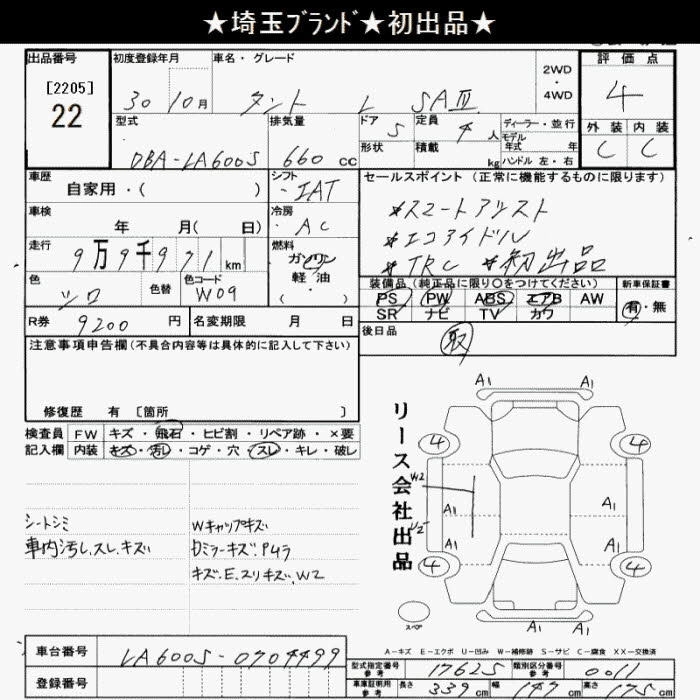 ★埼玉ﾌﾞﾗﾝﾄﾞ★初出品★
出品番号
[2205]
22
初度登録年月
30年10月
車名・グレード
タント L SAⅢ
2WD
・
4WD
評価点
4
外装 内装
C C
型式
DBA-LA600S
排気量
660 cc
ドア 5
定員 4 人
形状
積載 kg
ディーラー・並行
モデル
年式 年
ハンドル 左・右
車歴
自家用・( )
シフト
IAT
車検
年 月( 日)
冷房
AC
走行
9万9千971km
燃料
ガソリン
軽油
( )
色
シロ
色替
色コード
W09
R券
9200円
名変期限 月 日
セールスポイント (正常に機能するものに限ります)
*スマートアシスト
*エコアイドル
*TRC *初出品
装備品 (純正品に限り○をつけてください)
新車保証書
PS PW ABS エアB AW
SR ナビ TV カワ
有・無
後日品
取
注意事項申告欄(不具合内容等は具体的に記入して下さい)
修復歴 有 [箇所 ]
検査員
記入欄
FW キズ・飛石・ヒビ割・リペア跡・×要
内装 キズ・汚レ・コゲ・穴・スレ・キレ・破レ
シートシミ
車内汚し、スレ、キズ
Wキャップキズ
キズ.E.スリキズ.W2
リース会社出品
A1 A1
4 4
W2
A1 A1
A1 A1
4 4
A1 A1
スペア
A-キズ E-エクボ U-凹み W-補修跡 S-サビ C-腐食 XX-交換済
車台番号
LA600S-0704499
登録番号
型式指定番号
参考
17625
類別区分番号
参考
0011
車庫証明用
参考
長さ 339cm 幅 147cm 高さ 175cm